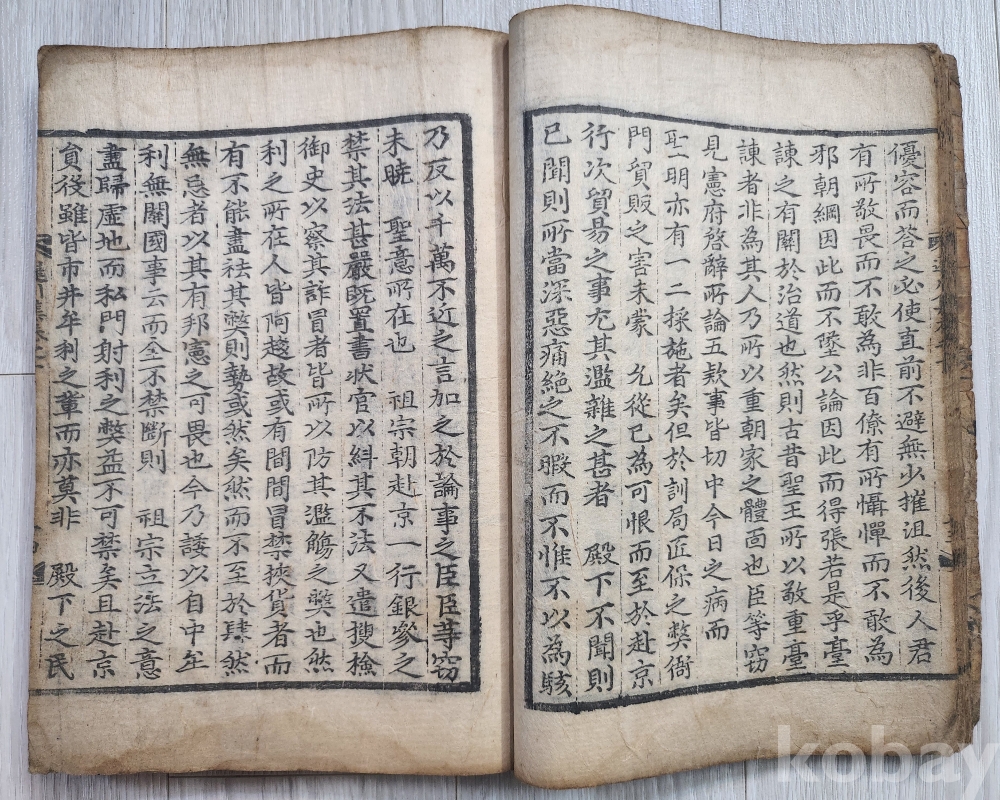 優容而答之必使直前不避無少摧沮然後人君
有所敬畏而不敢為非百僚有所懾憚而不敢為
邪朝綱因此而不墜公論因此而得張若是乎臺
諫之有關於治道也然則古昔聖王所以敬重臺
諫者非為其人乃所以重朝家之體面也臣等窃
見憲府啓辭所論五款事皆切中今日之病而
聖明亦有一二採施者矣但於訓局匠保之獘衙
門貿販之害未蒙 允從已為可恨而至於赴京
行次貿易之事尤其濫雜之甚者 殿下不聞則
已聞則所當深惡痛絶之不暇而不惟不以為駭
乃反以千萬不近之言加之於論事之臣臣等窃
未曉 聖意所在也 祖宗朝赴京一行銀蔘之
禁其法甚嚴既置書状官以糾其不法又遣搜檢
御史以察其詐冒者皆所以防其濫觴之獘也然
利之所在人皆阿趍故或有間間冒禁挾貨者而
有不能盡祛其獘則勢或然矣然而不至於肆然
無忌者以其有邦憲之可畏也今乃諉以自中年
利無關國事云而全不禁斷則 祖宗立法之意
盡歸虛地而私門射利之獘益不可禁矣且赴京
員役雖皆市井牟利之軰而亦莫非 殿下之民
kobay